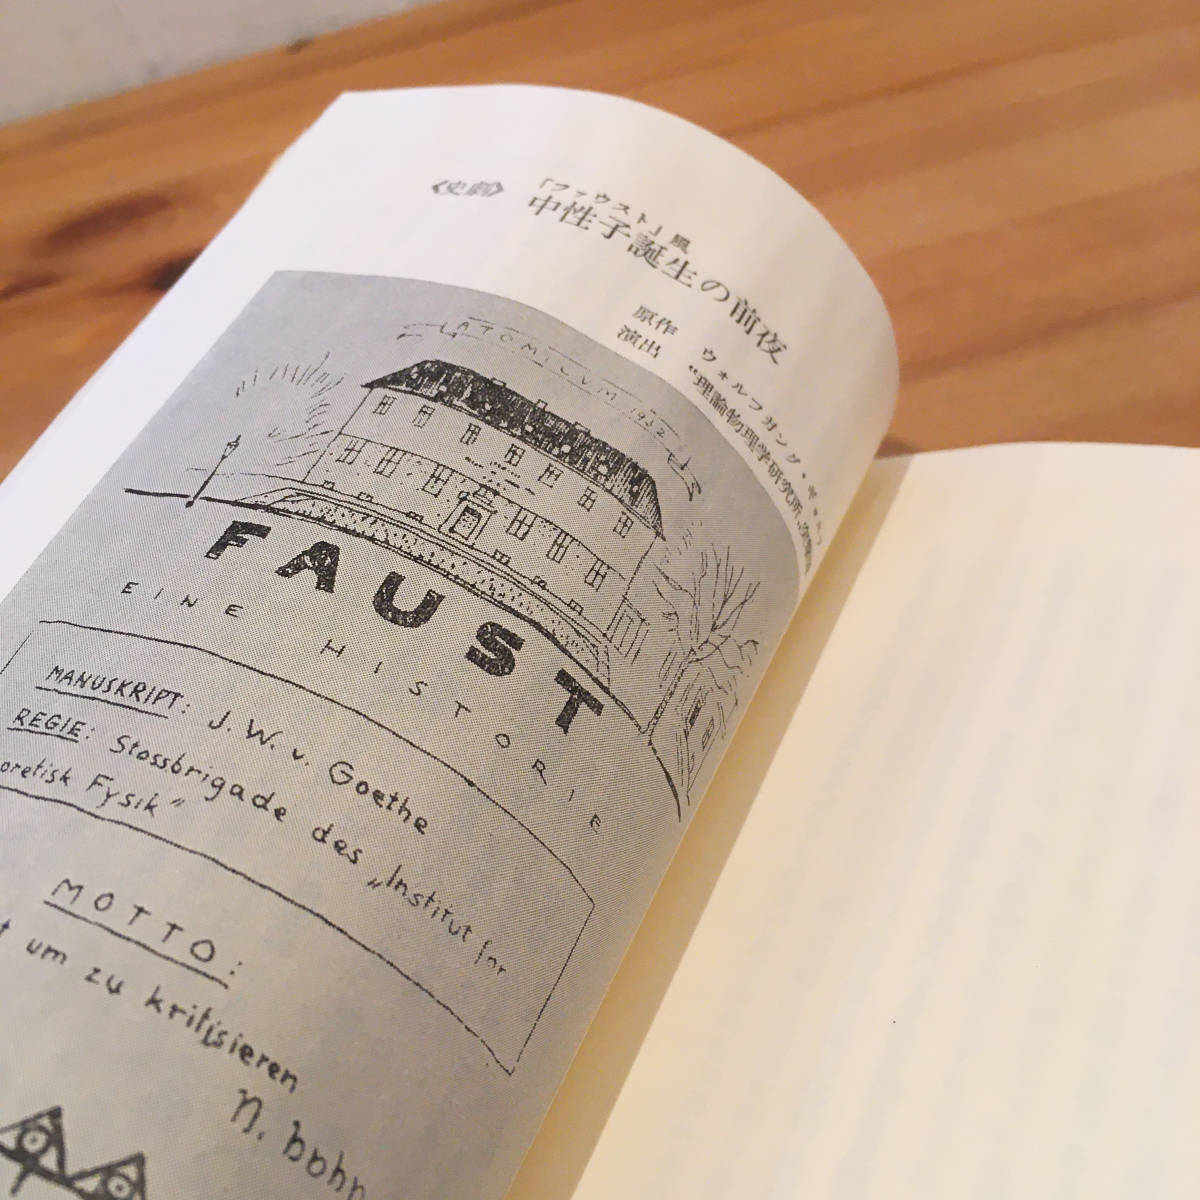 〈史劇〉
「ファウスト」風
中性子誕生の前夜
原作 ウォルフガング・
演出 “理論物理学研究所„
ATOMICVM 1932
FAUST
EINE HISTORIE
MANUSKRIPT: J. W. v. Goethe
REGIE: Stossbrigade des „Institut for
oretisk Fysik”
MOTTO:
t um zu kritisieren
N. bohr